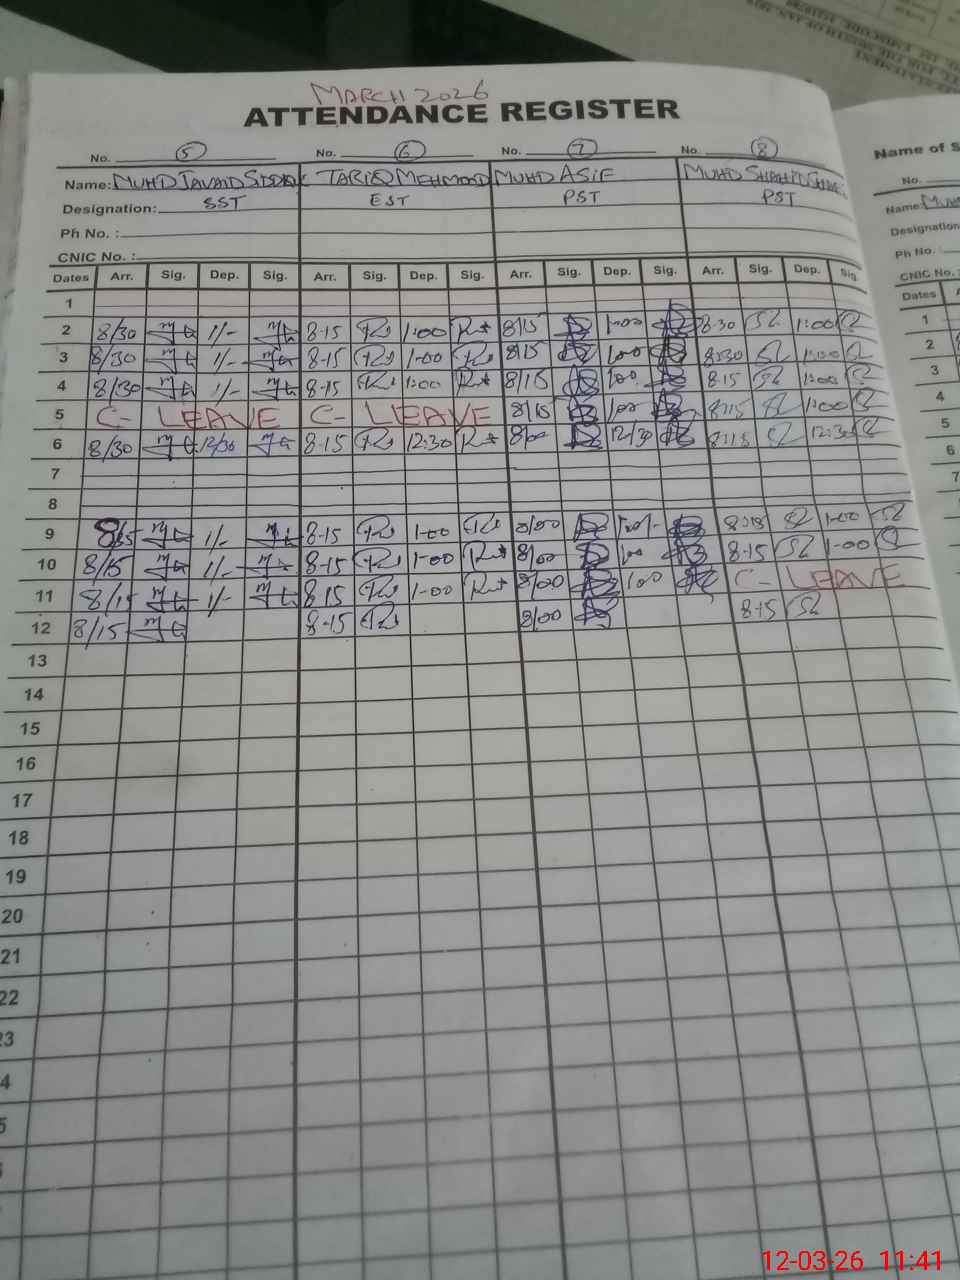 MARCH 2026
ATTENDANCE REGISTER
No. 5 No. 6 No. 7 No. 8
Name: MUHD JAVAID SIDDIQ TARIQ MEHMOOD MUHD ASIF MUHD SHAHID
Designation: SST EST PST PST
Ph No. :
CNIC No. :
Dates Arr. Sig. Dep. Sig. Arr. Sig. Dep. Sig. Arr. Sig. Dep. Sig. Arr. Sig. Dep. Sig.
1
2 8/30 1/- 8-15 1:00 8/15 1-00 8-30 1:00
3 8/30 1/- 8-15 1-00 8/15 100 8:30 1:00
4 8/30 1/- 8-15 1:00 8/15 100 8-15 1:00
5 C- LEAVE C- LEAVE 8/15 100 8:15 1:00
6 8/30 12/30 8-15 12:30 8/00 12/30 8:15 12:30
7
8
9 8/15 1/- 8-15 1-00 8/00 8-15 1-00
10 8/15 1/- 8-15 1-00 8/00 100 8-15 1-00
11 8/15 1/- 8-15 1-00 8/00 100 C- LEAVE
12 8/15 8-15 8/00 8-15
13
14
15
16
17
18
19
20
21
22
23
4
5
Name of S
No.
Name: MUH
Designation
Ph No. :
CNIC No. :
Dates A
1
2
3
4
5
6
7
12-03-26 11:41